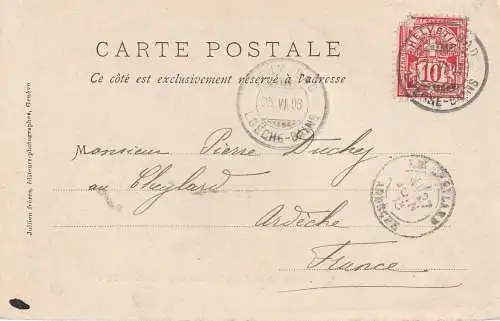 CARTE POSTALE
Ce côté est exclusivement réservé à l'adresse
HELVETIA
10
LOÈCHE-BAINS
29 VI 06
LOÈCHE-BAINS
Monsieur Pierre Duchy
au Cheylard
Ardèche
France
ARDÈCHE
Jullien frères, Éditeurs-photographes, Genève